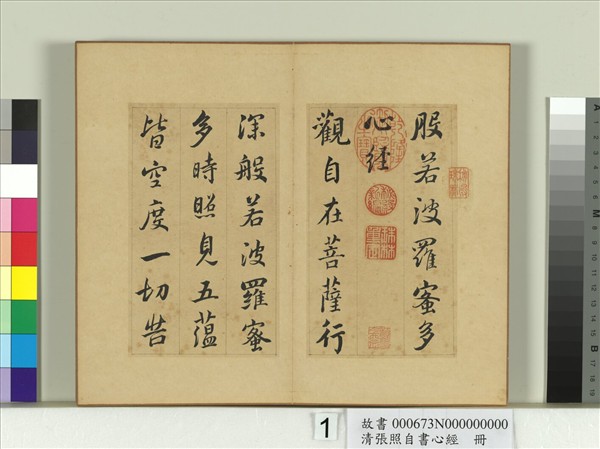 般若波羅蜜多
心經
觀自在菩薩行
深般若波羅蜜
多時照見五蘊
皆空度一切苦
1
故書 000673N000000000
清張照自書心經 冊